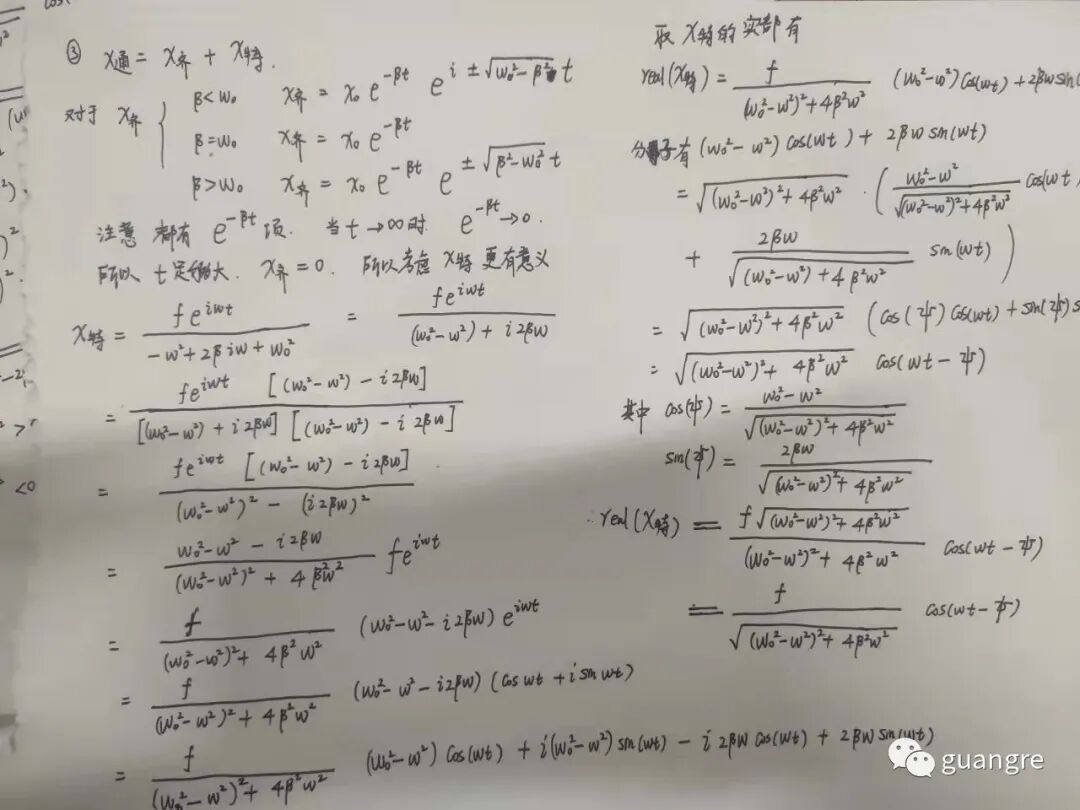 ③ x通 = x齐 + x特.
对于 x齐 { β<w₀ x齐 = x₀ e^{-βt} e^{i ± √(w₀²-β²) t}
β=w₀ x齐 = x₀ e^{-βt}
β>w₀ x齐 = x₀ e^{-βt} e^{± √(β²-w₀²) t}
注意 都有 e^{-βt} 项. 当 t→∞时. e^{-βt}→0.
所以 t 足够大. x齐 = 0. 所以考虑 x特 更有意义
x特 = fe^{iwt} / (-w²+2βiw+w₀²) = fe^{iwt} / ((w₀²-w²) + i2βw)
= fe^{iwt} [(w₀²-w²) - i2βw] / [(w₀²-w²) + i2βw] [(w₀²-w²) - i2βw]
= fe^{iwt} [(w₀²-w²) - i2βw] / ((w₀²-w²)² - (i2βw)²)
= (w₀²-w² - i2βw) / ((w₀²-w²)² + 4β²w²) fe^{iwt}
= f / ((w₀²-w²)² + 4β²w²) (w₀²-w²-i2βw) e^{iwt}
= f / ((w₀²-w²)² + 4β²w²) (w₀²-w²-i2βw) (cos wt + i sin wt)
= f / ((w₀²-w²)² + 4β²w²) (w₀²-w²) cos(wt) + i(w₀²-w²) sin(wt) - i2βw cos(wt) + 2βw sin(wt)
取 x特的实部有
real(x特) = f / ((w₀²-w²)² + 4β²w²) (w₀²-w²) cos(wt) + 2βw sin(
分子有 (w₀²-w²) cos(wt) + 2βw sin(wt)
= √((w₀²-w²)² + 4β²w²) · ( (w₀²-w²) / √((w₀²-w²)²+4β²w²) cos(wt
+ 2βw / √((w₀²-w²) + 4β²w²) sin(wt) )
= √((w₀²-w²)² + 4β²w²) (cos(ψ) cos(wt) + sin(ψ) s
= √((w₀²-w²)² + 4β²w²) cos(wt - ψ)
其中 cos(ψ) = (w₀²-w²) / √((w₀²-w²)² + 4β²w²)
sin(ψ) = 2βw / √((w₀²-w²)² + 4β²w²)
∴ real(x特) = f√((w₀²-w²)² + 4β²w²) / ((w₀²-w²)² + 4β²w²) cos(wt - ψ)
= f / √((w₀²-w²)² + 4β²w²) cos(wt - ψ)
guangre